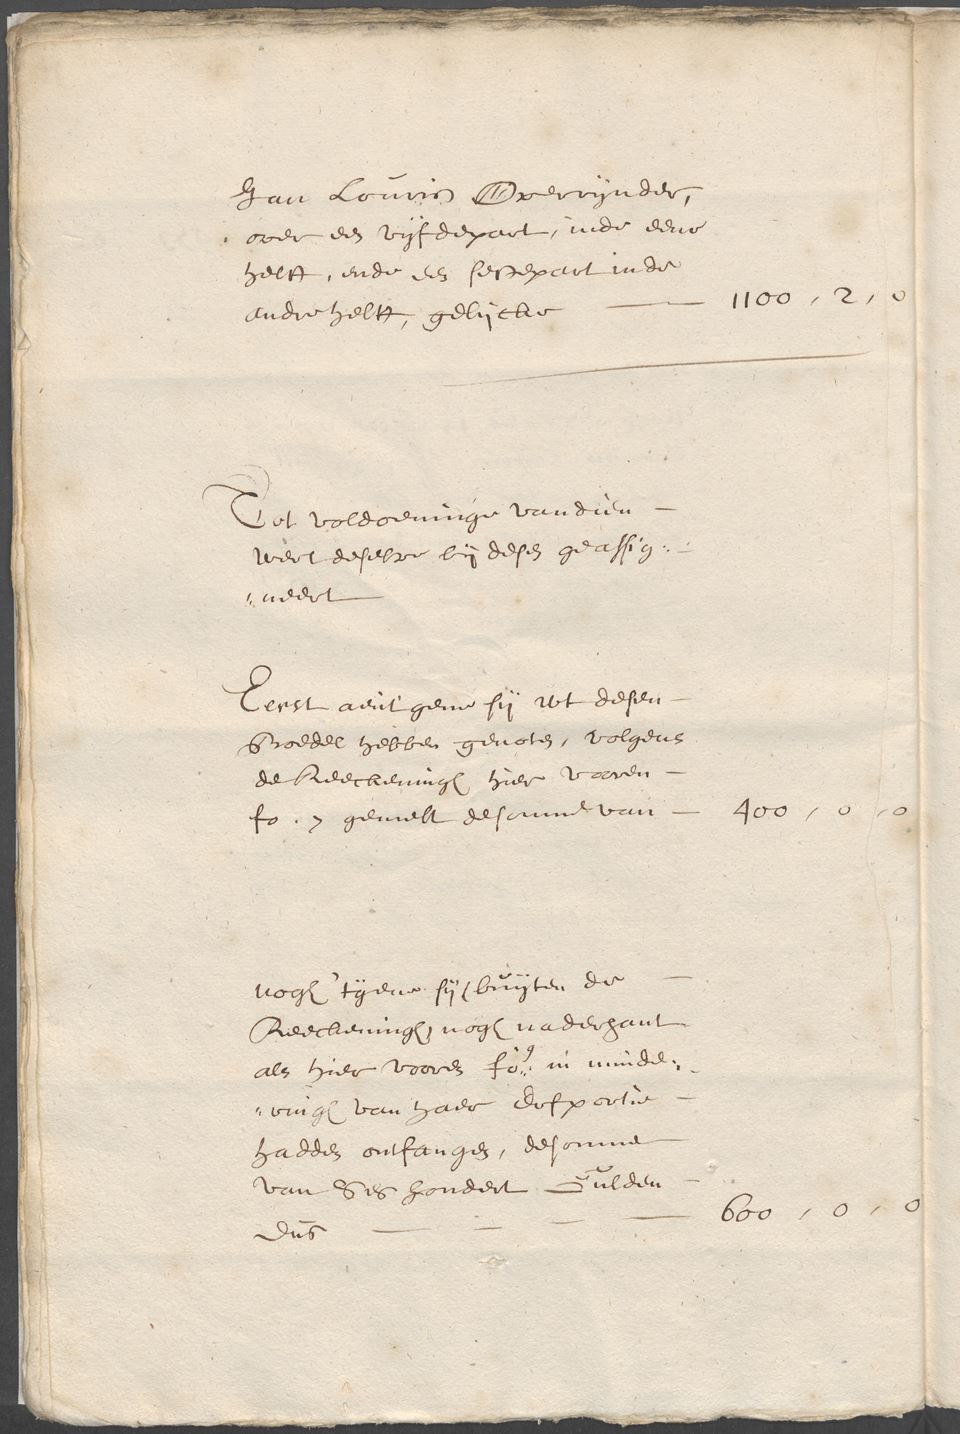 Jan Louris Overrijnder,
over een vijfdepart, inde eene
helft, ende een sestepart inde
andre helft, gelijcke — 1100 , 2 , 0
Tot voldoeninge van dien —
wert deselve bij desen geassig„
„neert
Eerst aent gene sij wt desen —
Boedel hebben genoten, volgens
de Reeckeningh hier vooren —
fo. 7 gemelt de somme van — 400 , 0 , 0
nogh 'tgene sij buijten de —
Reeckeningh, nogh naderhant
als hier vooren fo. 9 in minde„
„ringh van haer Erfportie —
hadden ontfangen, de somme
van Ses hondert Gulden —
Dus — — — — 600 , 0 , 0